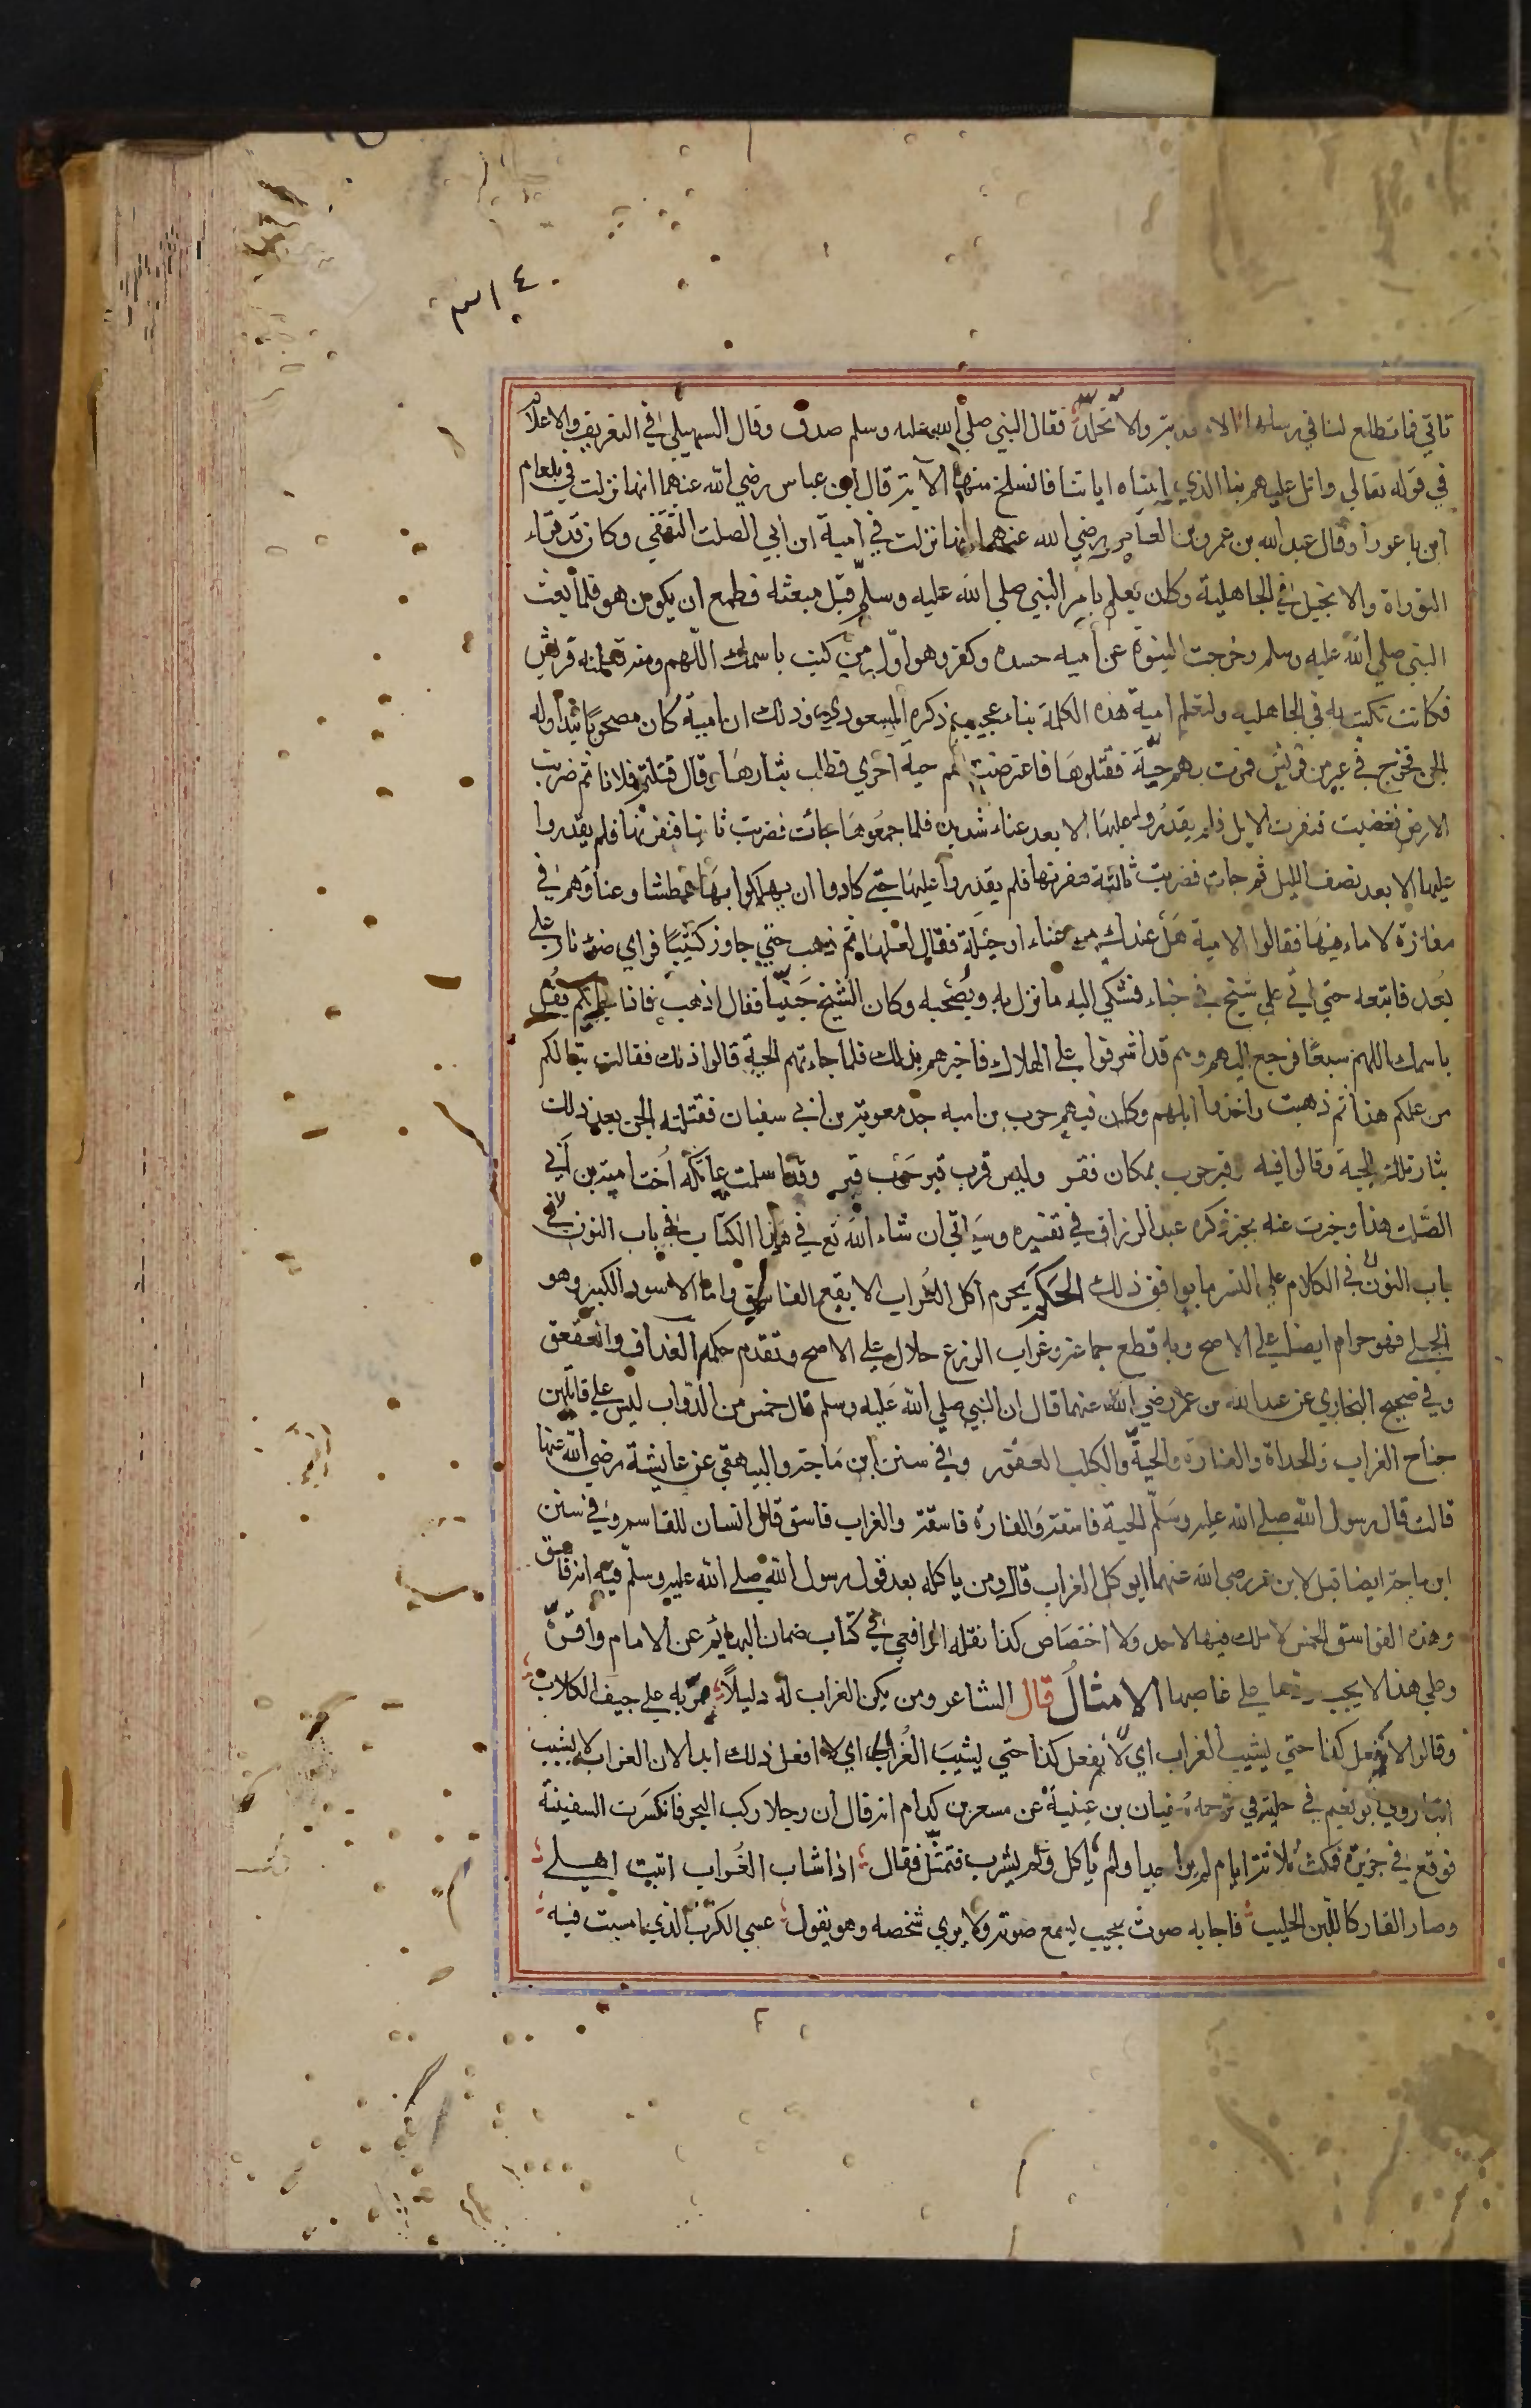 تاتي فما تطلع لنا في رسلها الا معذبة والا تجلد فقال النبي صلي الله عليه وسلم صدق وقال السهيلي في التعريف والاعلام
في قوله تعالي واتل عليهم نبا الذي اتيناه اياتنا فانسلخ منها الاية قال ابن عباس رضي الله عنهما انها نزلت في بلعام
ابن باعورا وقال عبد الله بن عمرو بن العاص رضي الله عنهما انها نزلت في امية ابن ابي الصلت الثقفي وكان قد قراء
التوراة والانجيل في الجاهلية وكان يعلم بامر النبي صلي الله عليه وسلم قبل مبعثه فطمع ان يكون هو فلما بعث
النبي صلي الله عليه وسلم وخرجت النبوة عن امية حسده وكفر وهو اول من كتب باسمك اللهم ومنه تعلمته قريش
فكانت تكتب به في الجاهليه ولتعلم امية هذه الكلمة نبا عجيب ذكره المسعودي وذلك ان امية كان مصحوبا تبدا وله
الجن فخرج في عير من قريش فمرت بهم حية فقتلوها فاعترضت لهم حية اخري فطلب بثارها وقال قتلتم فلانا ثم ضربت
الارض بقضيب فنفرت الابل فلم يقدروا عليها الا بعد عناء شديد فلما جمعوها جائت فضربت ثانيا فنفرتها فلم يقدروا
عليها الا بعد نصف الليل ثم جات فضربت ثالثة فنفرتها فلم يقدروا عليها حتي كادوا ان يهلكوا بها عطشا وعناؤهم في
مفازة لا ماء فيها فقالوا لامية هل عندك من غناء او حيلة فقال لعلها ثم ذهب حتي جاوز كثيبا فراي ضوء نار علي
بعد فاتبعه حتي اتي علي شيخ في خباء فشكي اليه ما نزل به وبصحبه وكان الشيخ جنيا فقال اذهب فاذا جاءتكم فقل
باسمك اللهم سبعا فرجع اليهم وهم قد اشرفوا علي الهلاك فاخبرهم بذلك فلما جاءتهم الحية قالوا ذلك فقالت تبا لكم
من علمكم هذا ثم ذهبت واخذوا ابلهم وكان فيهم حرب بن اميه جد معوية بن ابي سفيان فقتلته الجن بعد ذلك
بثار تلك الحية وقالوا فيه وقبر حرب بمكان فقر وليس قرب قبر حرب قبر وقد اسلمت عاتكة اخت امية بن ابي
الصلت هذا وخبرت عنه بخبر ذكره عبد الرزاق في تفسيره وسياتي ان شاء الله تع في هذا الكتاب في باب النون في
باب النون في الكلام علي النسر ما يوافق ذلك الحكم يحرم اكل الغراب الابقع الفاسق واما الاسود الكبير وهو
الجبلي فهو حرام ايضا علي الاصح وبه قطع جماعة وغراب الزرع حلال علي الاصح وتقدم حكم الغداف والعقعق
وفي صحيح البخاري عن عبد الله بن عمر رضي الله عنهما قال ان النبي صلي الله عليه وسلم قال خمس من الدواب ليس علي قاتلهن
جناح الغراب والحداة والفارة والحية والكلب العقور وفي سنن ابن ماجة والبيهقي عن عايشة رضي الله عنها
قالت قال رسول الله صلي الله عليه وسلم الحية فاسقة والفارة فاسقة والغراب فاسق قال انسان للقاسم وفي سنن
ابن ماجة ايضا قيل لابن عمر رضي الله عنهما ايوكل الغراب قال ومن ياكله بعد قول رسول الله صلي الله عليه وسلم فيه انه فاسق
وهذه الفواسق الخمس لا ملك فيها لاحد ولا اختصاص كذا نقله الرافعي في كتاب ضمان البهائم عن الامام واقره
وعلي هذا لا يجب ردها علي غاصبها الامثال قال الشاعر ومن يكن الغراب له دليلا يمر به علي جيف الكلاب
وقالوا لا افعل كذا حتي يشيب الغراب اي لا يفعل كذا حتي يشيب الغراب اي لا افعل ذلك ابدا لان الغراب لا يشيب
ابدا روي ابو نعيم في حليته في ترجمة سفيان بن عيينة عن مسعر بن كدام انه قال ان رجلا ركب البحر فانكسرت السفينة
فوقع في جزيرة فمكث ثلاثة ايام لم ير احدا ولم ياكل ولم يشرب فتمثل فقال اذا شاب الغراب اتيت اهلي
وصار القار كاللبن الحليب فاجابه صوت مجيب يسمع صوته ولا يري شخصه وهو يقول عسي الكرب الذي امسيت فيه